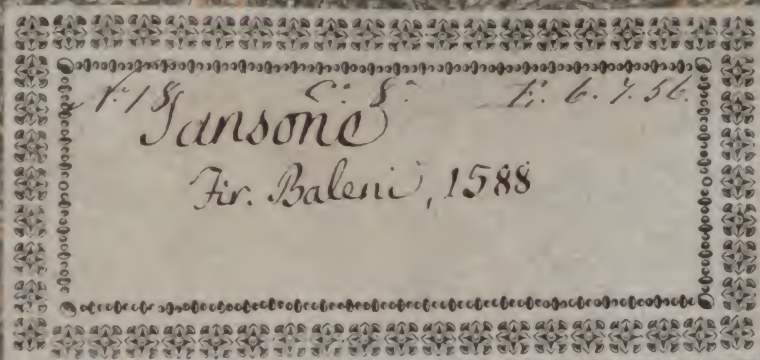 N. 18 C. 8. E. 6. 7. 56.
Sansone
Fir. Baleni, 1588